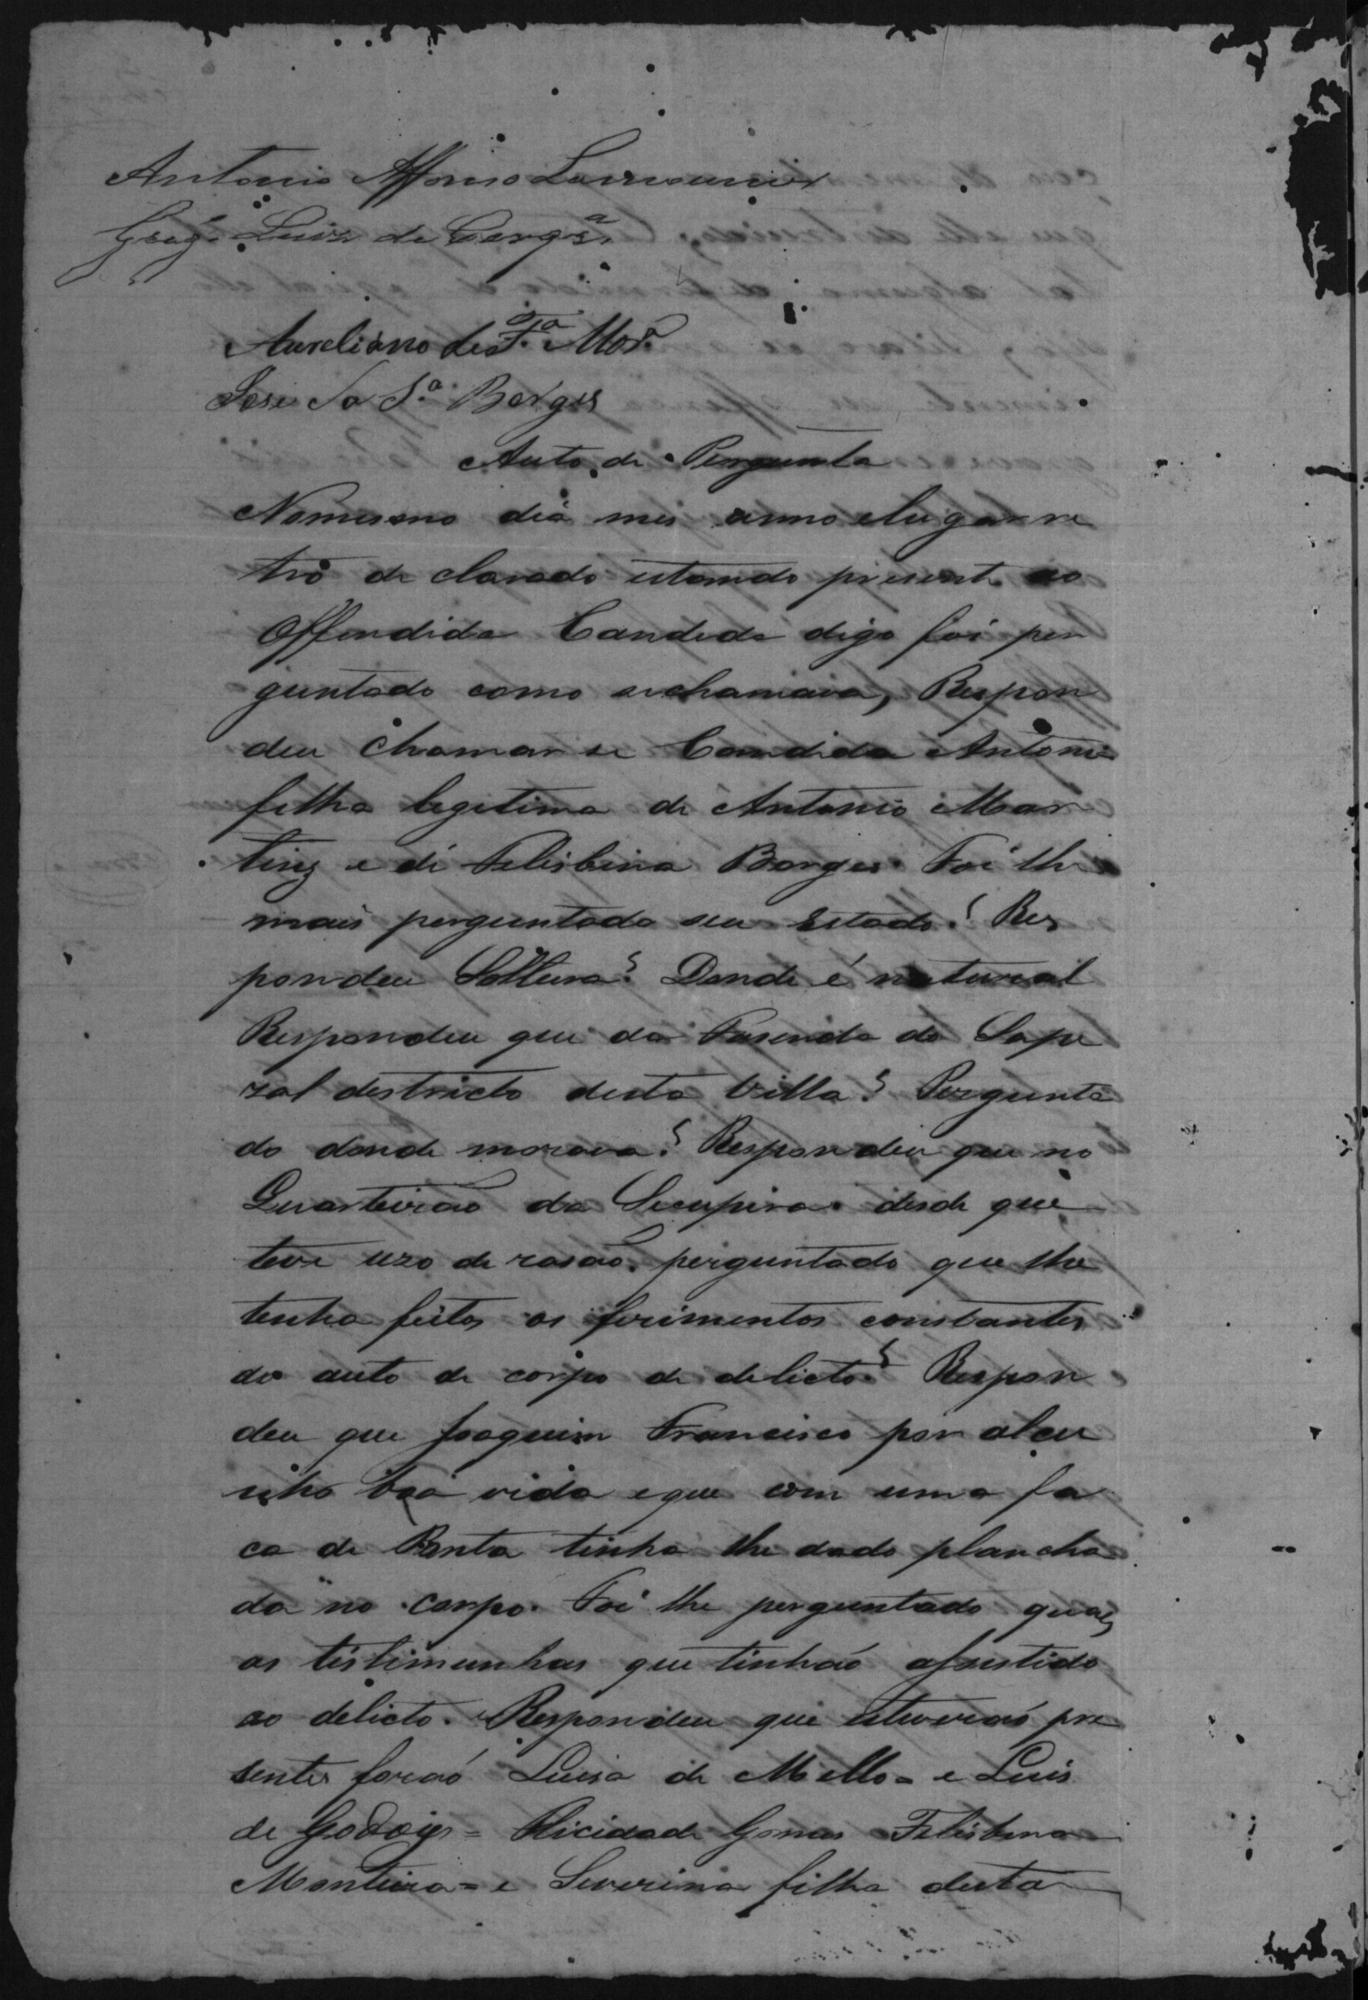 Antonio Affonso Lamounier
Greg.º Luiz de Cerqr.ª
Aureliano de F.ª Mor.ª
José da S.ª Borges
Auto de Pergunta
Nomesmo dia mes anno elugar re
tro de clarado estando presente ao
Offendida Candida digo foi per
guntado como sechamava, Respon
deu chamar se Candida Antonia
filha legitima de Antonio Mar
tins e de Felisbina Borges. Foi lhe
mais perguntado seu Estado? Res
pondeu Solteira? Donde é natural
Respondeu que da Fasenda do Sape
zal destricto desta Villa? Pergunta
do donde morava? Respondeu que no
Quarteirão da Sucupira desde que
teve uzo de rasão. perguntado que lhe
tenha feitos os ferimentos constantes
do auto de corpo de delicto? Respon
deu que Joaquim Francisco por alcu
nha boa vida eque com uma fa
ca de Ponta tinha lhe dado plancha
da no corpo. Foi lhe perguntado quaes
as testimunhas que tinhão assistido
ao delicto. Respondeu que estiverão pre
sentes forão Luisa de Mello = e Luis
de Godoy = Felicidade Gomes Felisbina
Monteira = e Severina filha desta